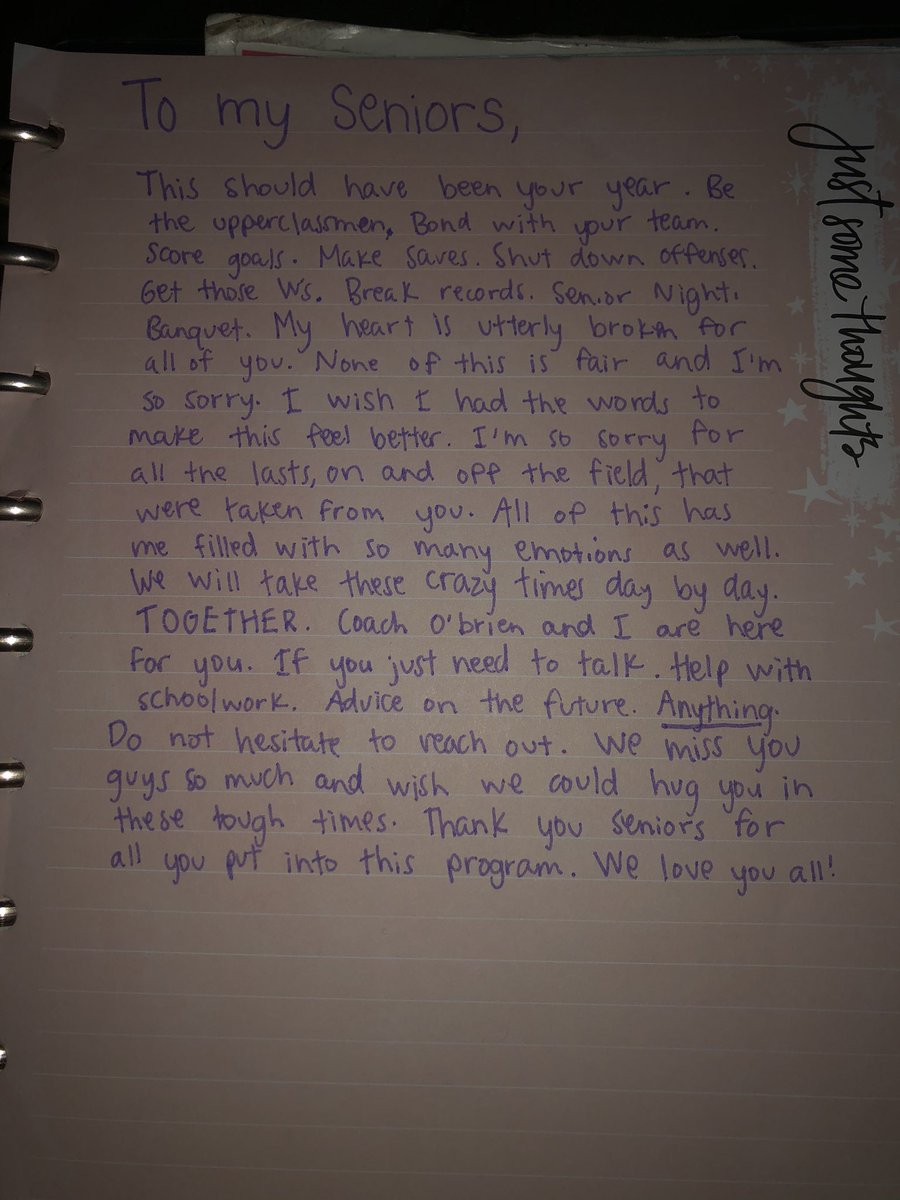 To my Seniors,
just some thoughts
This should have been your year. Be
the upperclassmen, Bond with your team.
Score goals. Make saves. Shut down offenses.
Get those Ws. Break records. Senior Night.
Banquet. My heart is utterly broken for
all of you. None of this is fair and I'm
so sorry. I wish I had the words to
make this feel better. I'm so sorry for
all the lasts, on and off the field, that
were taken from you. All of this has
me filled with so many emotions as well.
We will take these crazy times day by day.
TOGETHER. Coach O'brien and I are here
for you. If you just need to talk. Help with
schoolwork. Advice on the future. Anything.
Do not hesitate to reach out. We miss you
guys so much and wish we could hug you in
these tough times. Thank you seniors for
all you put into this program. We love you all!